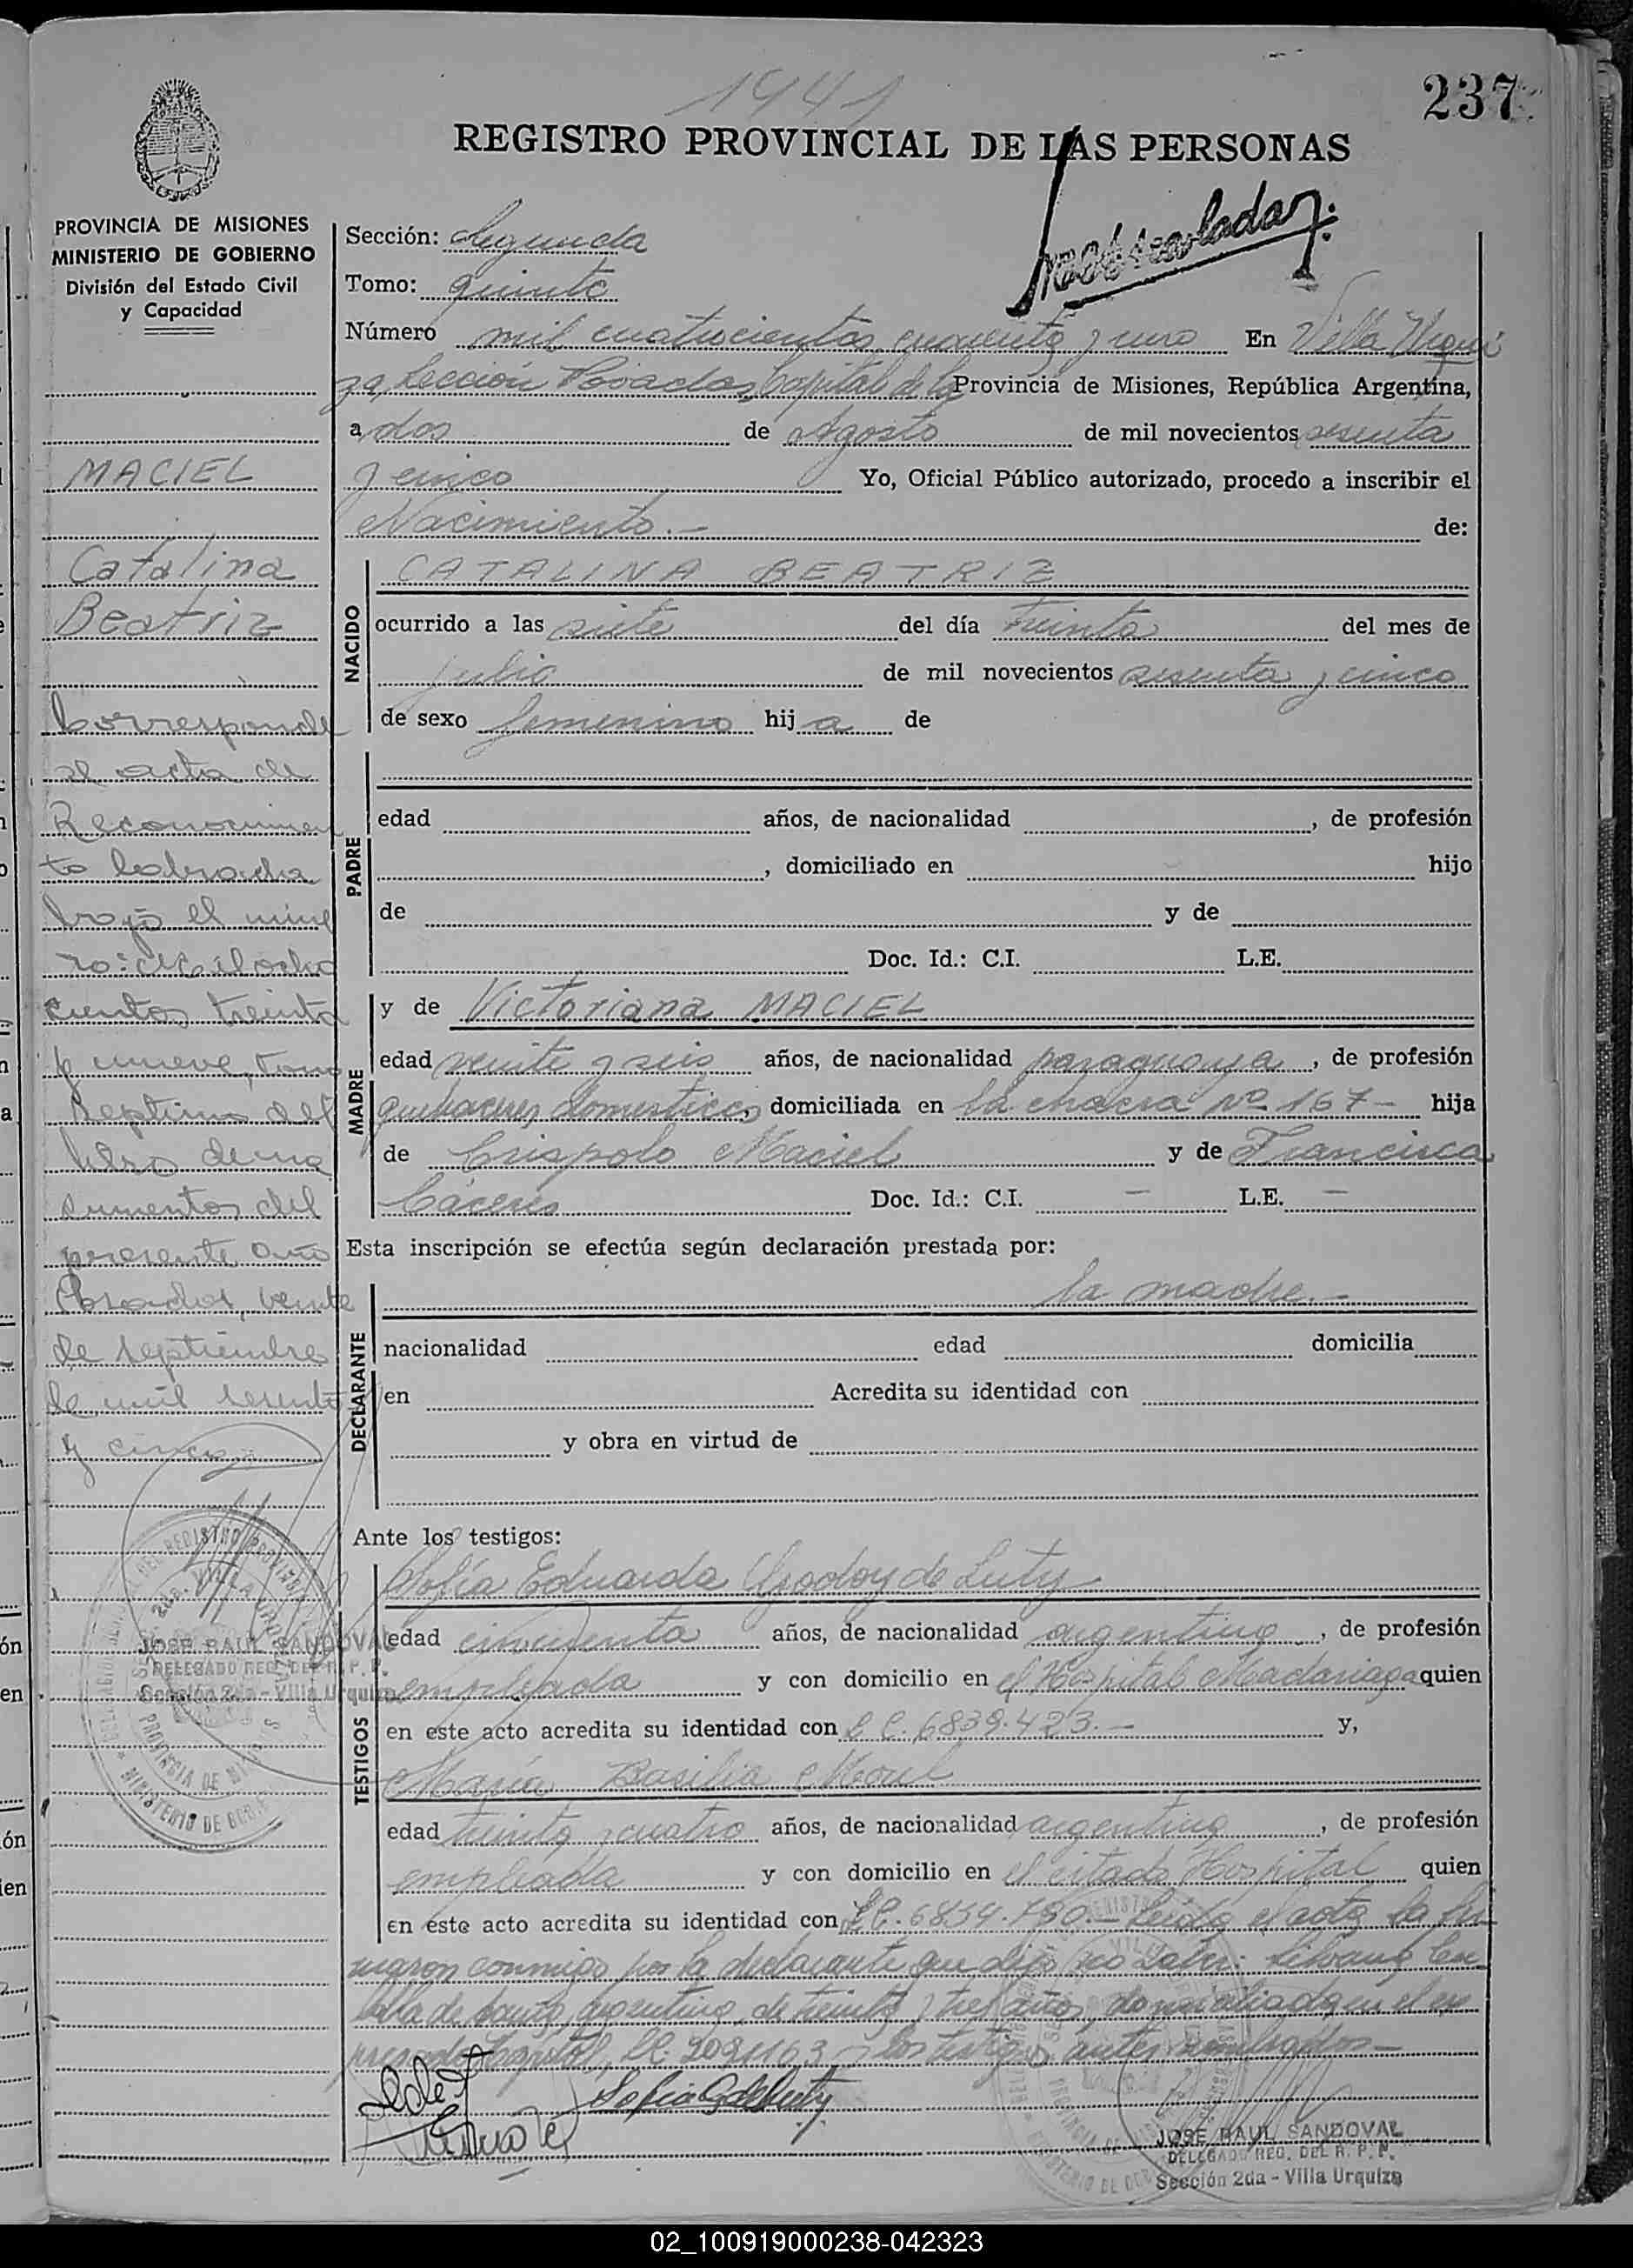 1441
237
REGISTRO PROVINCIAL DE LAS PERSONAS
PROVINCIA DE MISIONES
MINISTERIO DE GOBIERNO
División del Estado Civil
y Capacidad
MACIEL
Catalina
Beatriz
Corresponde
al acta de
Reconocimien
to labrada
bajo el núme
ro: mil ocho
cientos treinta
y nueve, tomo
septimo del
libro de
del
presente año
Posadas, veinte
de septiembre
de mil sesenta
y cinco
Sección: Segunda
Tomo: quinto
Número mil cuatrocientos cuarenta y uno En Villa Urqui
za, Sección Posadas, Capital de la Provincia de Misiones, República Argentina,
a dos de Agosto de mil novecientos sesenta
y cinco Yo, Oficial Público autorizado, procedo a inscribir el
Nacimiento.- de:
NACIDO
CATALINA BEATRIZ
ocurrido a las siete del día treinta del mes de
julio de mil novecientos sesenta y cinco
de sexo femenino hija de
PADRE
edad años, de nacionalidad , de profesión
, domiciliado en hijo
de y de
Doc. Id.: C.I. L.E.
MADRE
y de Victoriana MACIEL
edad veinte y seis años, de nacionalidad paraguaya, de profesión
quehaceres domesticos, domiciliada en la chacra Nº 167- hija
de Crispolo Maciel y de Francisca
Cáceres Doc. Id.: C.I. - L.E. -
Esta inscripción se efectúa según declaración prestada por:
DECLARANTE
la madre.-
nacionalidad edad domicilia
en Acredita su identidad con
y obra en virtud de
Ante los testigos:
TESTIGOS
Sofía Eduarda Godoy de Luty
edad cincuenta años, de nacionalidad argentina, de profesión
empleada y con domicilio en el Hospital Madariaga quien
en este acto acredita su identidad con L.C. 6839.423.- y,
María Basilia
edad treinta y cuatro años, de nacionalidad argentina, de profesión
empleada y con domicilio en el citado Hospital quien
en este acto acredita su identidad con L.C. 6834.780.- Leída el acta la fir
maron conmigo por la declarante que dijo no saber:
argentina, de treinta y tres años, domiciliada en el ex
presado Hospital, y los testigos antes nombrados-
Sofia G de Luty
JOSE RAUL SANDOVAL
DELEGADO REG. DEL R. P. P.
Sección 2da - Villa Urquiza
JOSE RAUL SANDOVAL
DELEGADO REG. DEL R. P. P.
Sección 2da - Villa Urquiza
02_100919000238-042323